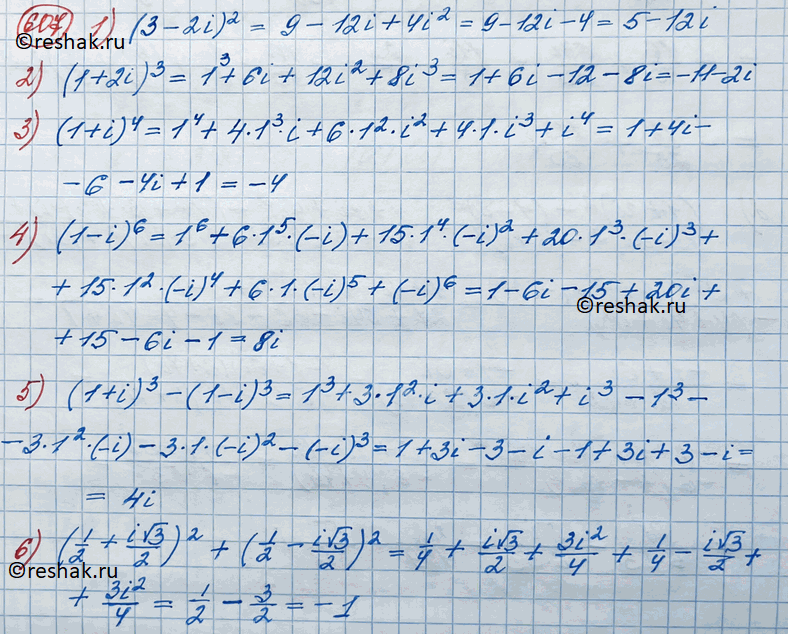 607 1) (3-2i)² = 9-12i+4i² = 9-12i-4 = 5-12i
©reshak.ru
2) (1+2i)³ = 1³+6i+12i²+8i³ = 1+6i-12-8i=-11-2i
3) (1+i)⁴ = 1⁴+4·1³·i+6·1²·i²+4·1·i³+i⁴ = 1+4i-
-6-4i+1 = -4
4) (1-i)⁶ = 1⁶+6·1⁵·(-i)+15·1⁴·(-i)²+20·1³·(-i)³+
+15·1²·(-i)⁴+6·1·(-i)⁵+(-i)⁶ = 1-6i-15+20i+
©reshak.ru
+15-6i-1 = 8i
5) (1+i)³-(1-i)³ = 1³+3·1²·i+3·1·i²+i³-1³-
-3·1²·(-i)-3·1·(-i)²-(-i)³ = 1+3i-3-i-1+3i+3-i =
= 4i
6) (1/2+i√3/2)²+(1/2-i√3/2)² = 1/4+i√3/2+3i²/4+1/4-i√3/2+
©reshak.ru
+3i²/4 = 1/2-3/2 = -1
©reshak.ru